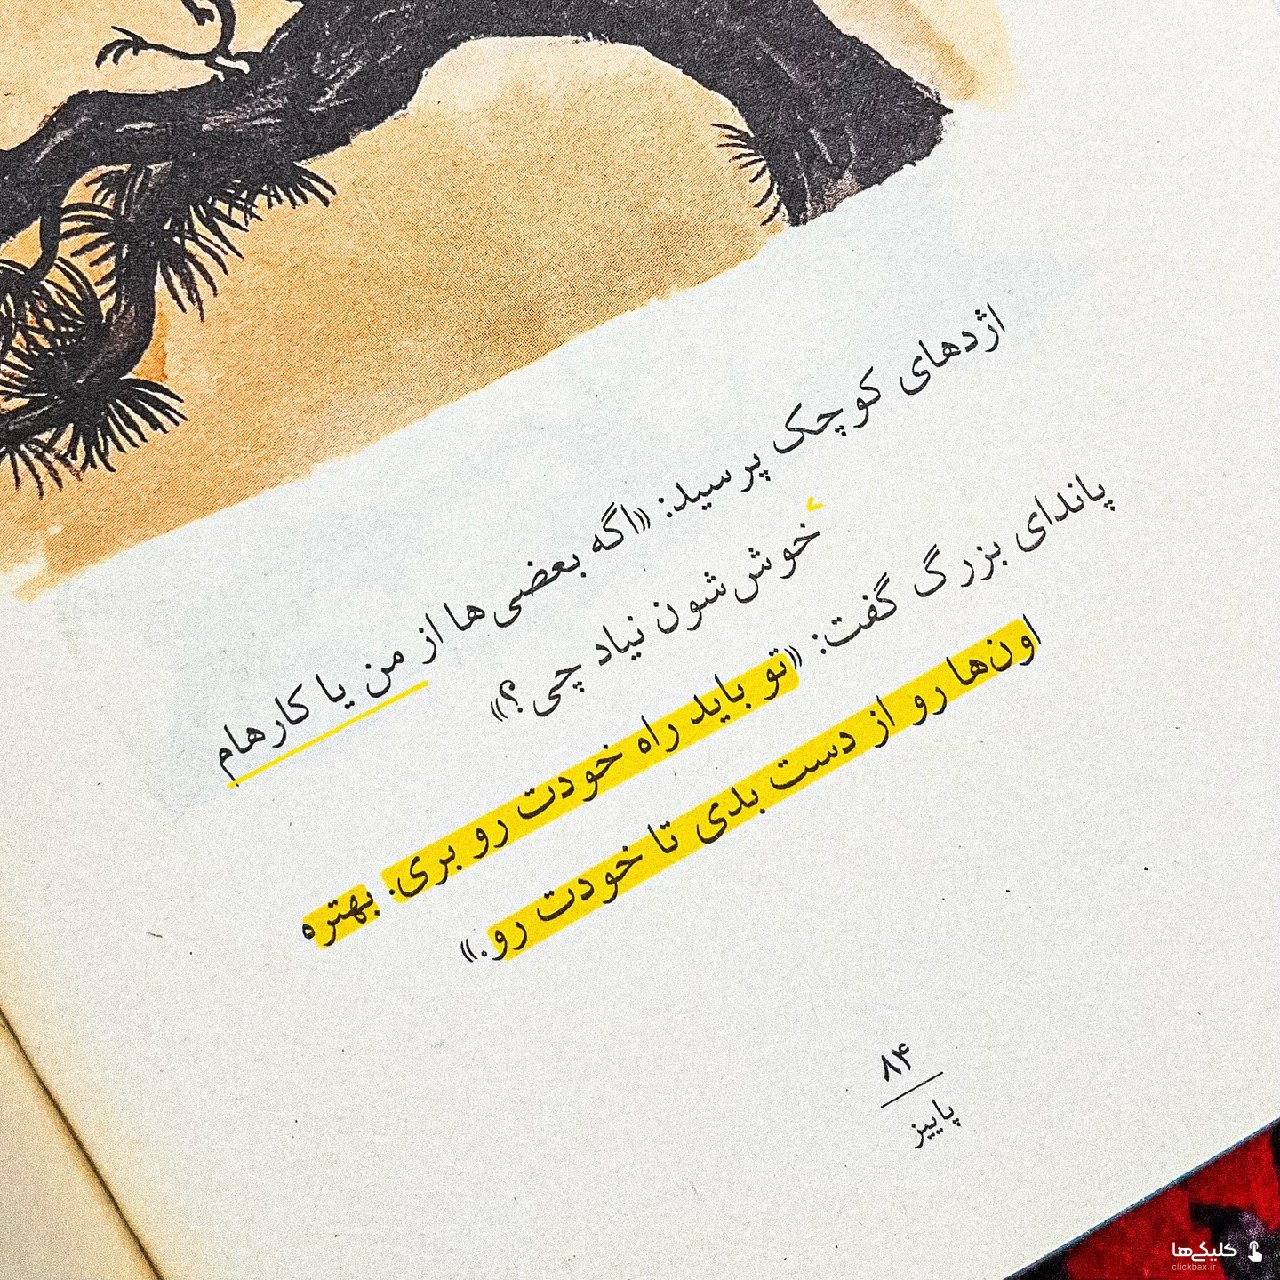 اژدهای کوچک پرسید: «اگه بعضی‌ها از من یا کارهام
خوش‌شون نیاد چی؟»
پاندای بزرگ گفت: «تو باید راه خودت رو بری. بهتره
اون‌ها رو از دست بدی تا خودت رو.»
۸۴
پاییز
کلیکی‌ها
clickbax.ir